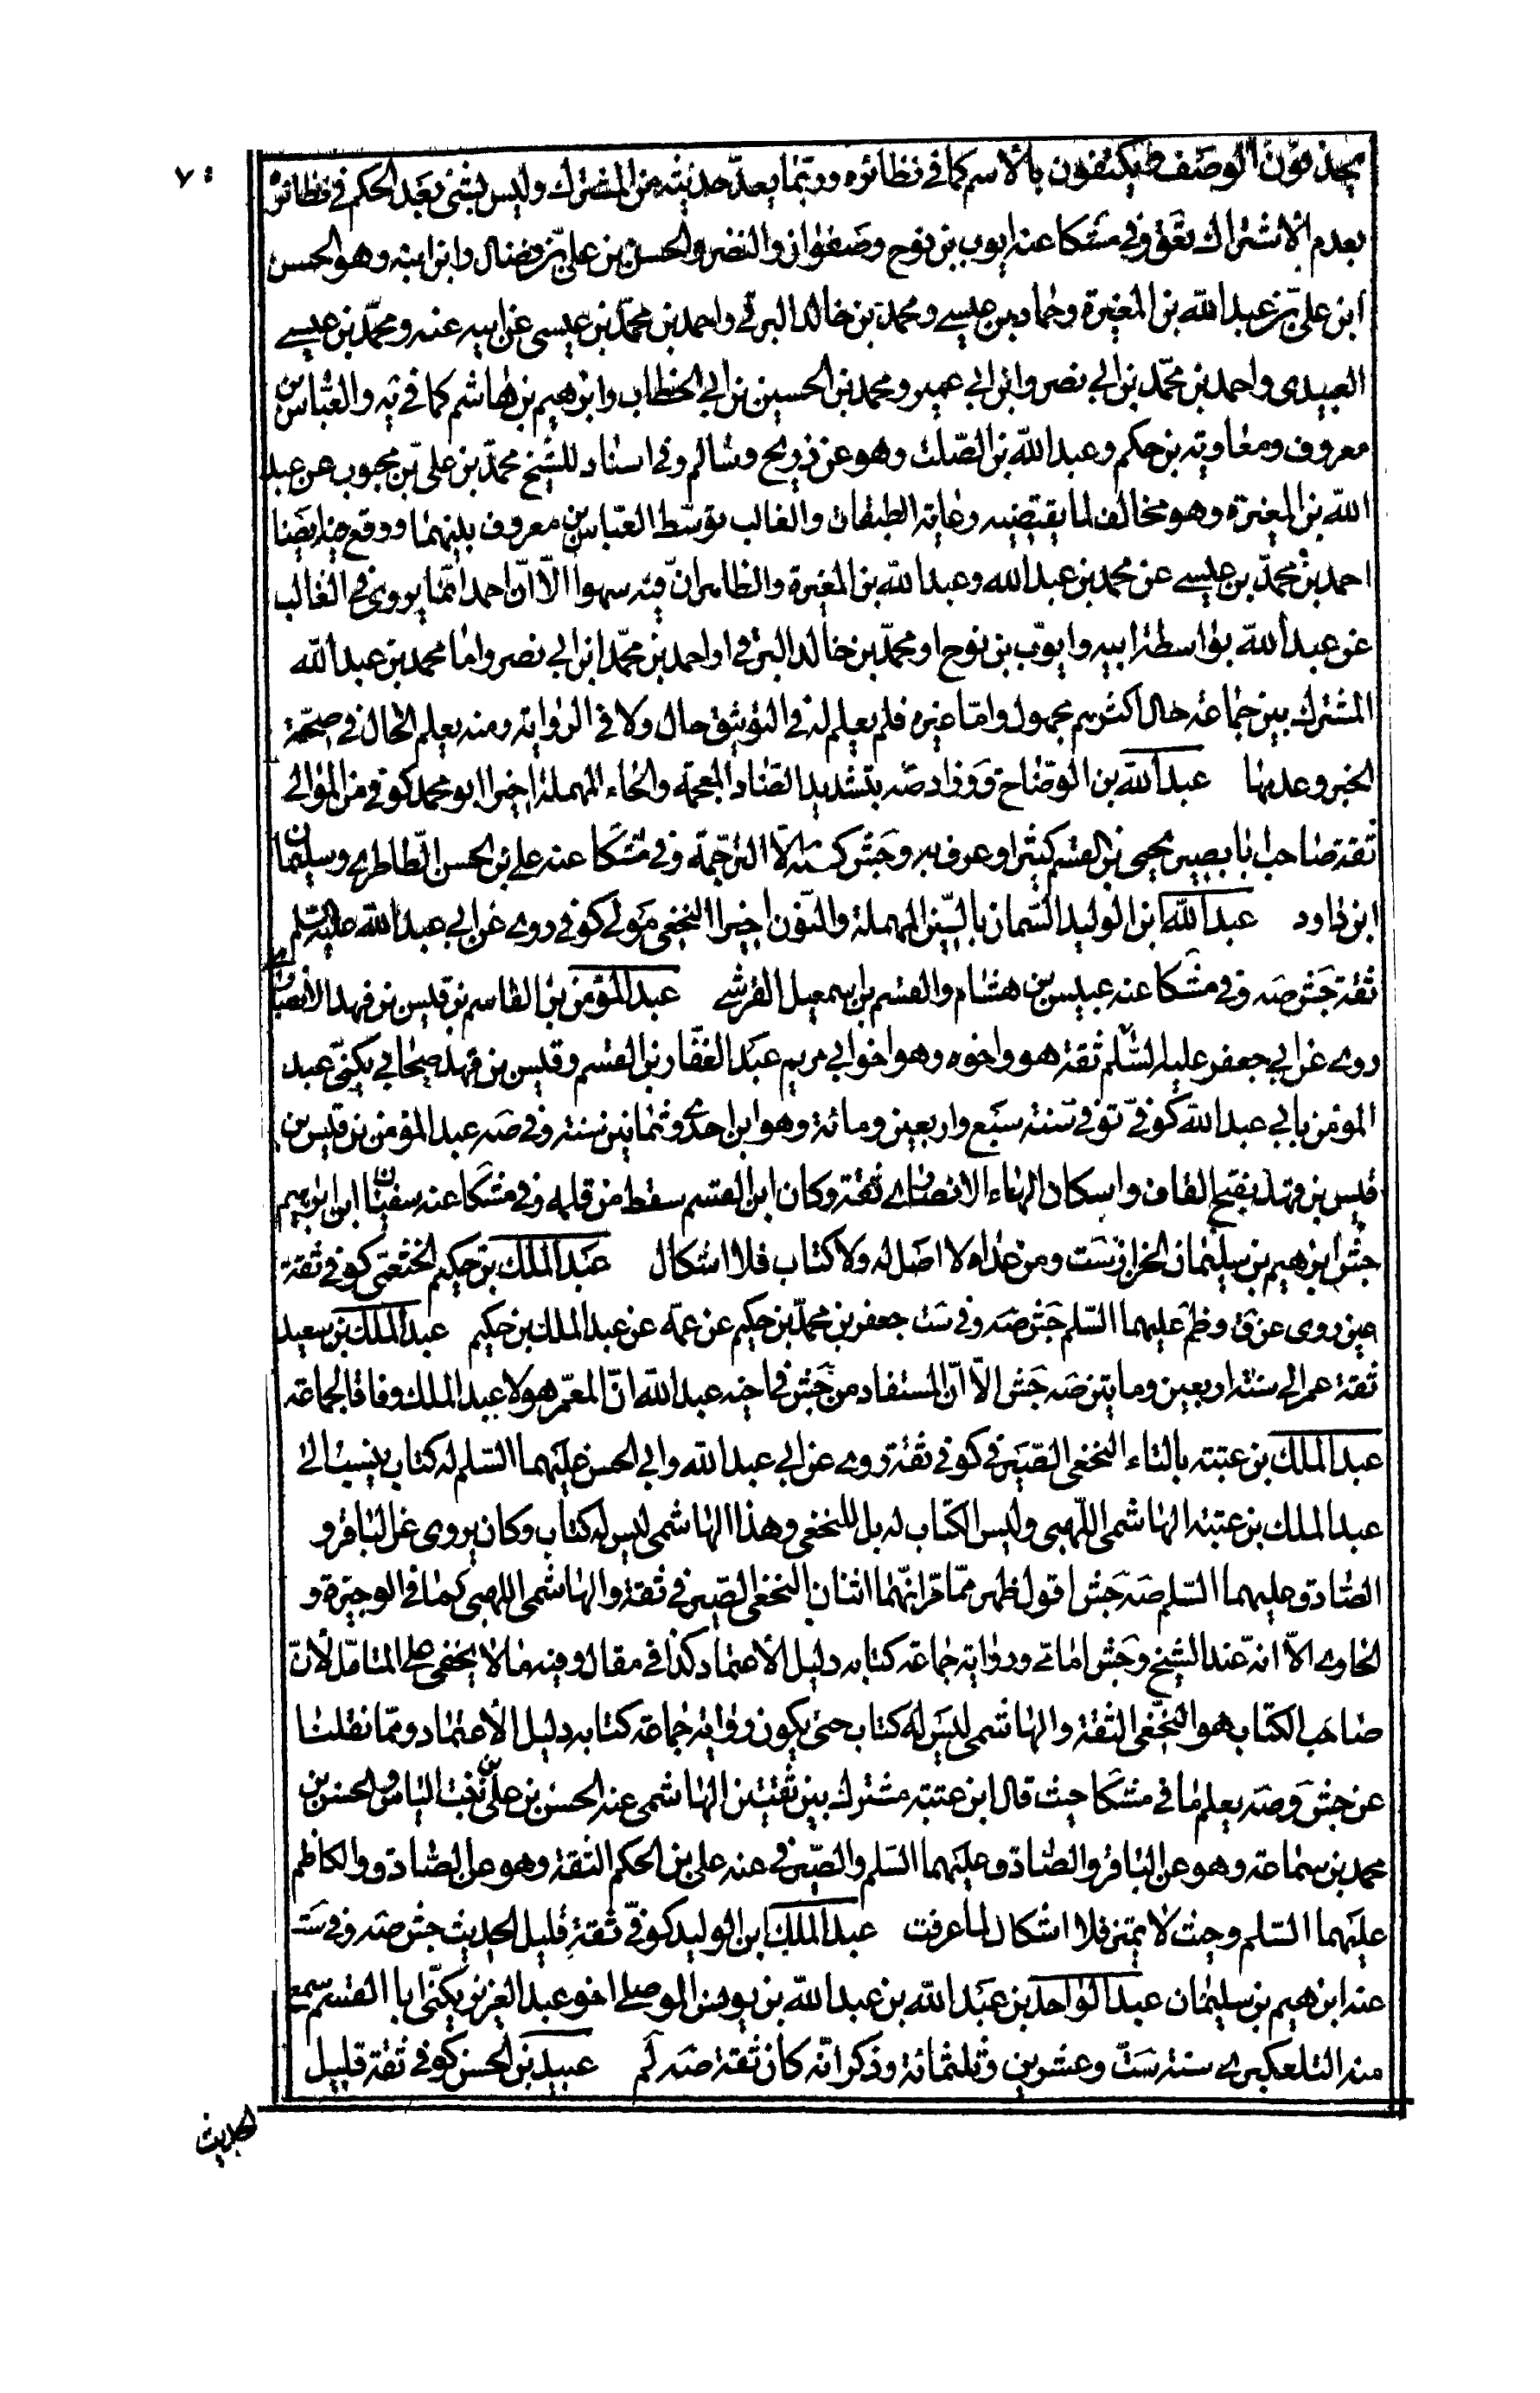 ٧٠
يحذفون الوصف ويكتفون بالاسم كما في نظائره وربّما يعدّ حديثه من المشترك وليس بشئ بعد الحكم في نظائره
بعدم الاشتراك تعق وفي مشكا عنه ايوب بن نوح وصفوان والنضر والحسن بن علىّ بن فضال وابن ابنه وهو الحسن
ابن علىّ بن عبد الله بن المغيرة وحماد بن عيسے ومحمد بن خالد البرقي واحمد بن محمّد بن عيسى عن ابيه عنه ومحمّد بن عيسے
العبيدى واحمد بن محمّد بن ابي نصر وابن ابي عمير ومحمد بن الحسين بن ابي الخطاب وابرهيم بن هاشم كما في يه والعبّاس بن
معروف ومعاوية بن حكيم وعبد الله بن الصّلت وهو عن ذريح وسالم وفي اسناد للشيخ محمّد بن علىّ بن محبوب عن عبد
الله بن المغيرة وهو مخالف لما يقتضيه رعاية الطبقات والغالب توسّط العبّاس بن معروف بينهما ووقع فيه ايضا
احمد بن محمّد بن عيسے عن محمد بن عبد الله وعبد الله بن المغيرة والظاهر انّ فيه سهوا الاّ انّ احمد انّما يروى في الغالب
عن عبد الله بواسطة ابيه وايوّب بن نوح او محمّد بن خالد البرقي او احمد بن محمّد ابن ابي نصر واما محمد بن عبد الله
المشترك بين جماعة حال اكثرهم مجهول وامّا غيره فلم يعلم له في التوثيق حال ولا في الرواية ومنه يعلم الحال في صحّة
الخبر وعدمها عبد الله بن الوضّاح وزاد صه بتشديد الضاد المعجمة والحاء المهملة اخيرا ابو محمد كوفي من الموالي
ثقة صاحب ابا بصير يحيى بن القسم كثيرا وعرف به وجش كصه الاّ الترجمة وفي مشكا عنه علي بن الحسن الطّاطرے وسليمان
ابن داود عبد الله ابن الوليد السّمان بالسّين المهملة والنّون اخيرا النخعى مولے كوفي روے عن ابي عبد الله عليه السّلم
ثقة جش صه وفي مشكا عنه عبيس بن هشام والقسم بن اسمعيل القرشے عبد المؤمن بن القاسم بن قيس بن فهد الانصارے
روے عن ابي جعفر عليه السّلم ثقة هو واخوه وهو اخو ابي مريم عبد الغفّار بن القسم وقيس بن فهد صحابي يكنّى عبد
المؤمن بابي عبد الله كوفيّ توفي سنة سبع واربعين ومائة وهو ابن احدے وثمانين سنة وفي صه عبد المؤمن بن قيس بن
قيس بن فهد بفتح القاف واسكان الهاء الانصارے ثقة وكان ابن القسم سقط من قلمه وفي مشكا عنه سفيان ابن ابراهيم
جش ابرهيم بن سليمان الخراز ست ومن عداه لا اصل له ولا كتاب فلا اشكال عبد الملك بن حكيم الخثعمى كوفي ثقة
عين روى عن ق وظم عليهما السّلم جش صه وفي ست جعفر بن محمّد بن حكيم عن عمّه عن عبد الملك بن حكيم عبد الملك بن سعيد
ثقة عمر الي سنة اربعين ومايتين صه جش الاّ انّ المستفاد من جش في اخيه عبد الله انّ المعمّر هو لا عبد الملك وفاقا لجماعة
عبد الملك بن عتبة بالتاء النخعى الصّيرفي كوفي ثقة روے عن ابي عبد الله وابي الحسن عليهما السّلم له كتاب ينسب الي
عبد الملك بن عتبة الهاشمى اللّهبى وليس الكتاب له بل للنخعى وهذا الهاشمى ليس له كتاب وكان يروى عن الباقر و
الصّادق عليهما السّلم صه جش اقول ظهر ممّا مرّ انّهما اثنان النخعى الصّيرفي ثقة والهاشمى اللهبى كما في الوجيزة و
الحاوے الاّ انّه عند الشيخ وجش امامي ورواية جماعة كتابه دليل الاعتماد كذا في مقال وفيهما لا يخفى على المتامّل لانّ
صاحب الكتاب هو النخعى الثقة والهاشمى ليس له كتاب حتى يكون رواية جماعة كتابه دليل الاعتماد وممّا نقلنا
عن جش وصه يعلم ما في مشكا حيث قال ابن عتبة مشترك بين ثقتين الهاشمى عنه الحسن بن علىّ بن بنت الياس والحسن بن
محمد بن سماعة وهو عن الباقر والصّادق عليهما السّلم والصّيرفي عنه على بن الحكم الثقة وهو عن الصّادق والكاظم
عليهما السّلم وحيث لا يتميز فلا اشكال لما عرفت عبد الملك ابن الوليد كوفيّ ثقة قليل الحديث جش صه وفي ست
عنه ابرهيم بن سليمان عبد الواحد بن عبد الله بن عبد الله بن يونس الموصلے اخو عبد العزيز يكنّى ابا القسم سمع
منه التلعكبرے سنة ستّ وعشرين وثلثمائة وذكر انّه كان ثقة صه لم عبيد بن الحسن كوفي ثقة قليل
الحديث